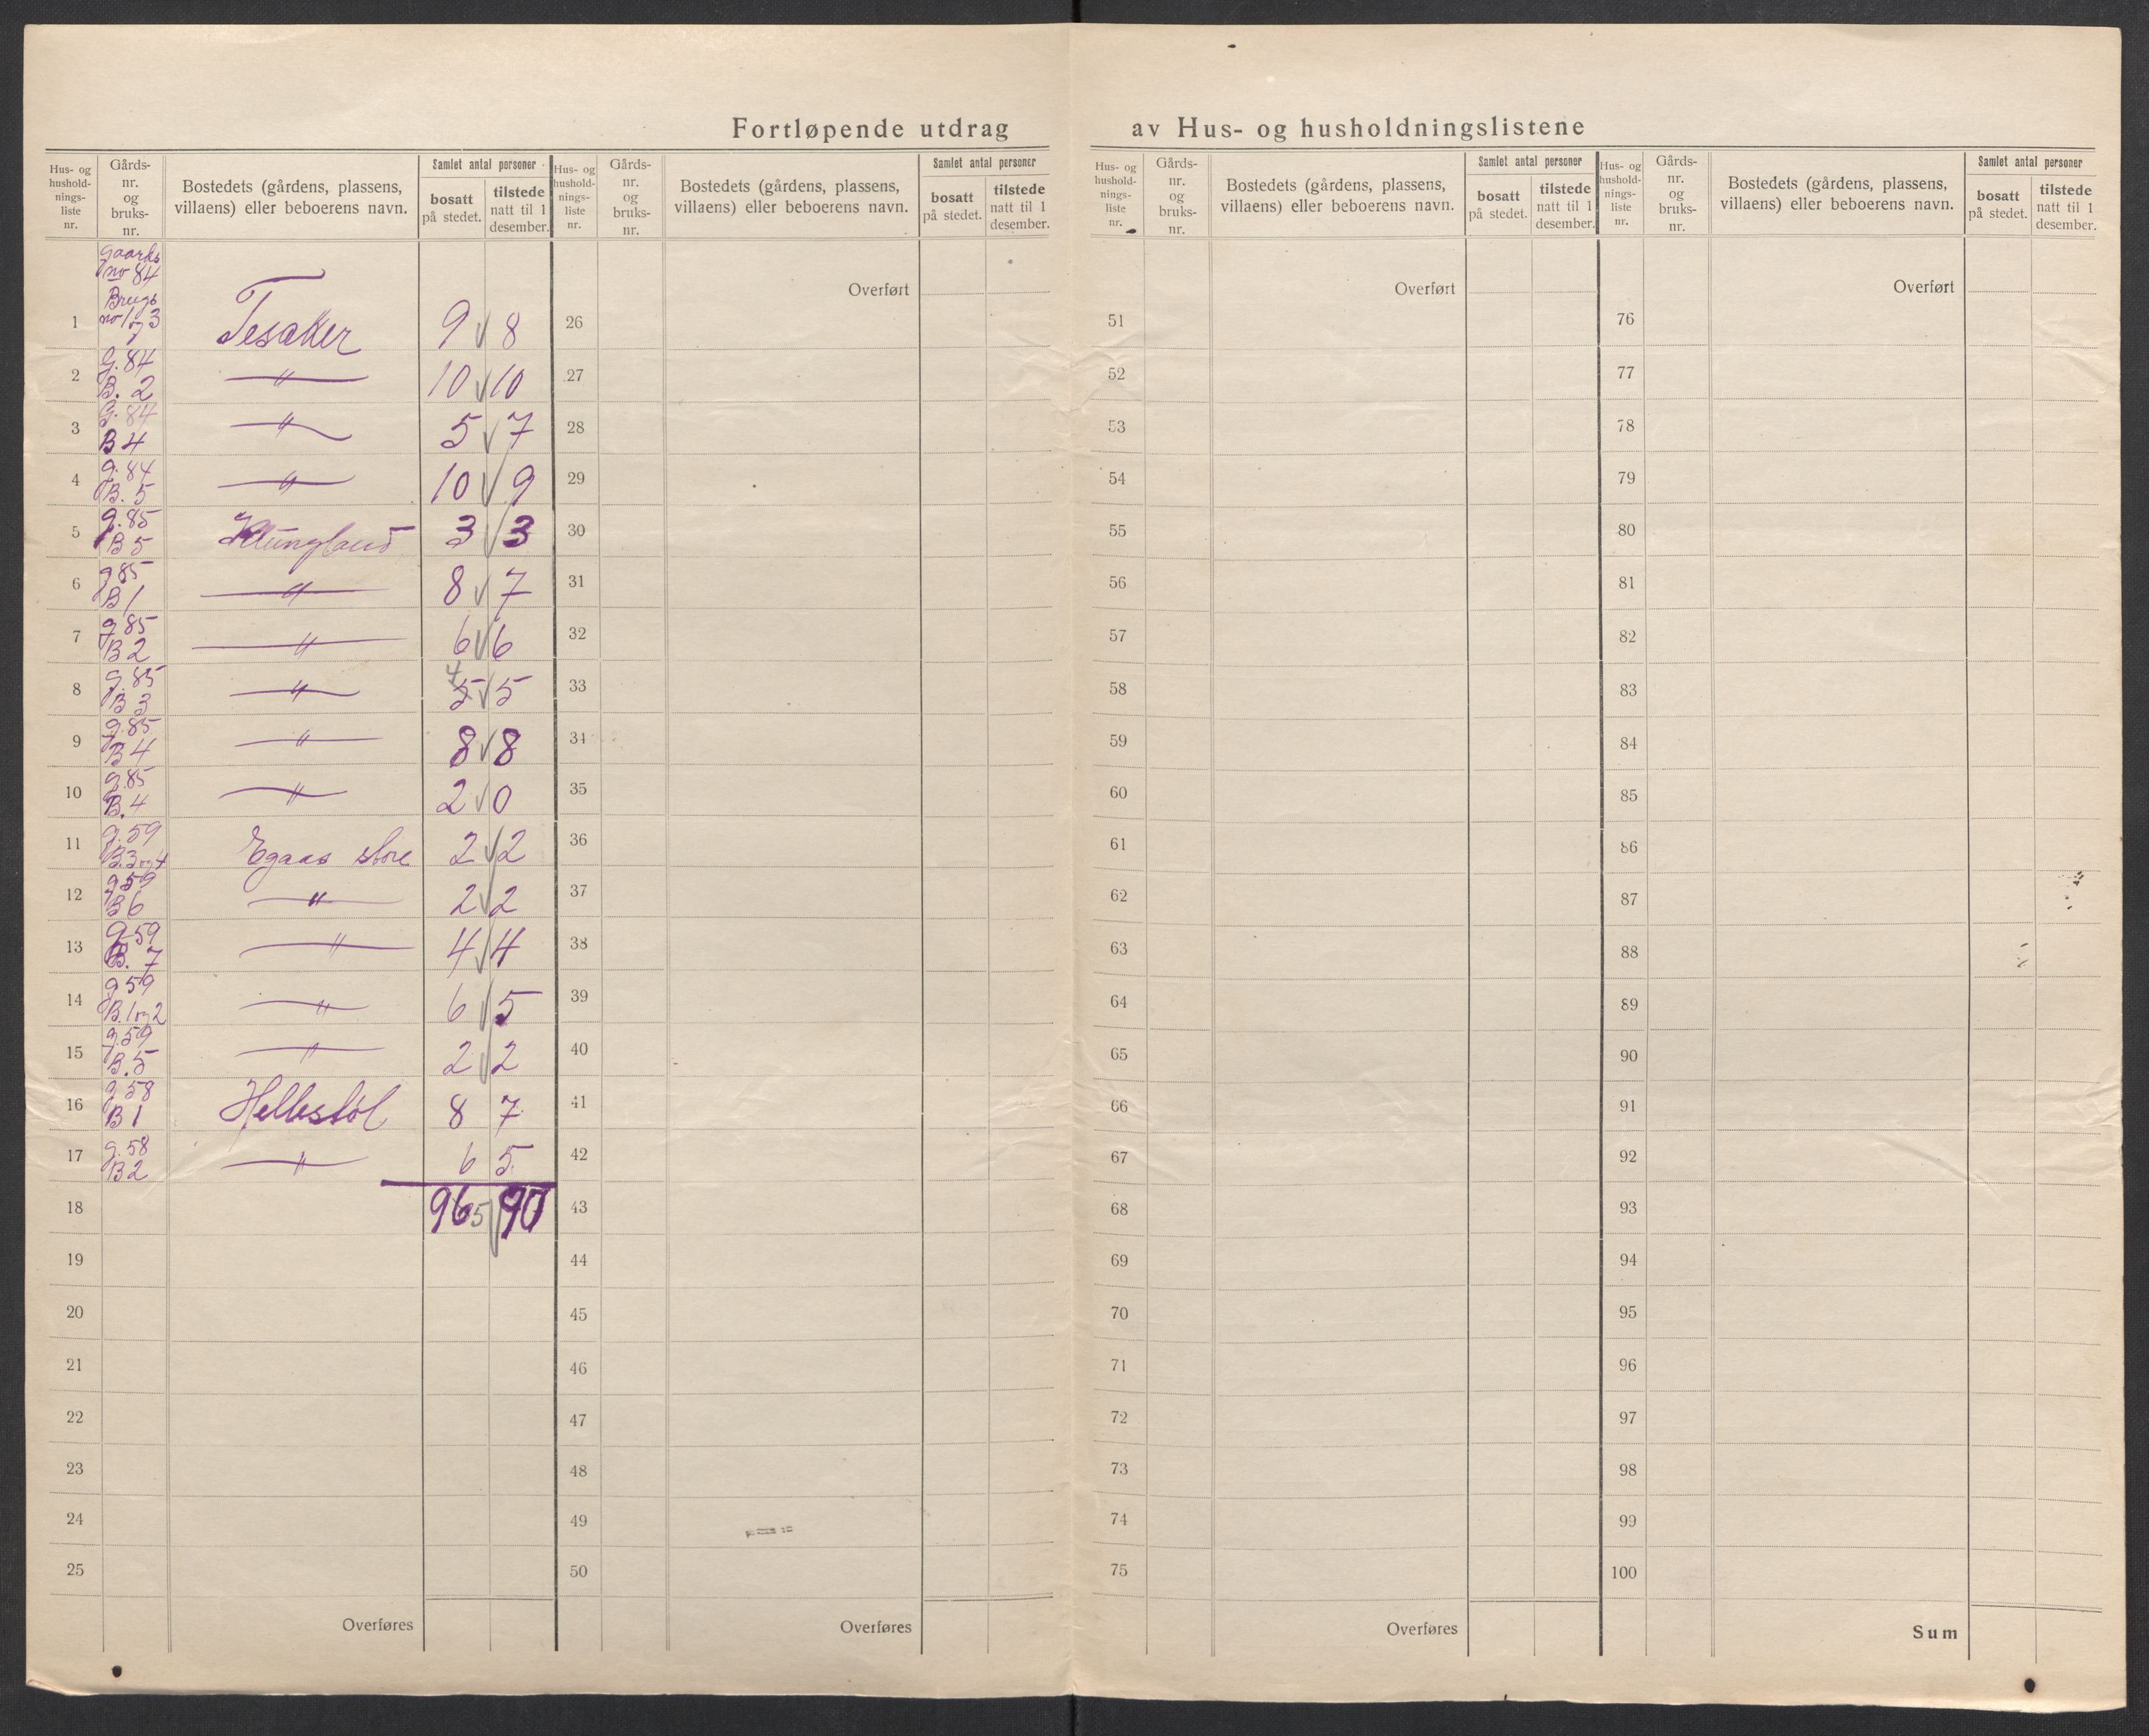 Fortløpende utdrag av Hus- og husholdningslistene
Hus- og hushold- nings- liste nr. | Gårds- nr. og bruks- nr. | Bostedets (gårdens, plassens, villaens) eller beboerens navn. | Samlet antal personer | bosatt på stedet. | tilstede natt til 1 desember.
Gaards no 84
Brugs no 1 og 3
1 Tesaker 9 8
2 G. 84 B. 2 〃 10 10
3 G. 84 B 4 〃 5 7
4 g. 84 B. 5 〃 10 9
5 g. 85 B 5 Klungland 3 3
6 g 85 B 1 〃 8 7
7 g 85 B 2 〃 6 6
8 g. 85 B 3 〃 5 4 5
9 g. 85 B 4 〃 8 8
10 g. 85 B. 4 〃 2 0
11 g. 59 B. 3 og 4 Egaas store 2 2
12 g 59 B 6 〃 2 2
13 g 59 B. 7 〃 4 4
14 g 59 B. 1 og 2 〃 6 5
15 g. 59 B. 5 〃 2 2
16 g. 58 B 1 Hellestøl 8 7
17 g. 58 B 2 〃 6 5
18 96 5 90
19
20
21
22
23
24
25
Overføres
Hus- og hushold- nings- liste nr. | Gårds- nr. og bruks- nr. | Bostedets (gårdens, plassens, villaens) eller beboerens navn. | Samlet antal personer | bosatt på stedet. | tilstede natt til 1 desember.
Overført
26
27
28
29
30
31
32
33
34
35
36
37
38
39
40
41
42
43
44
45
46
47
48
49
50
Overføres
Hus- og hushold- nings- liste nr. | Gårds- nr. og bruks- nr. | Bostedets (gårdens, plassens, villaens) eller beboerens navn. | Samlet antal personer | bosatt på stedet. | tilstede natt til 1 desember.
Overført
51
52
53
54
55
56
57
58
59
60
61
62
63
64
65
66
67
68
69
70
71
72
73
74
75
Overføres
Hus- og hushold- nings- liste nr. | Gårds- nr. og bruks- nr. | Bostedets (gårdens, plassens, villaens) eller beboerens navn. | Samlet antal personer | bosatt på stedet. | tilstede natt til 1 desember.
Overført
76
77
78
79
80
81
82
83
84
85
86
87
88
89
90
91
92
93
94
95
96
97
98
99
100
Sum